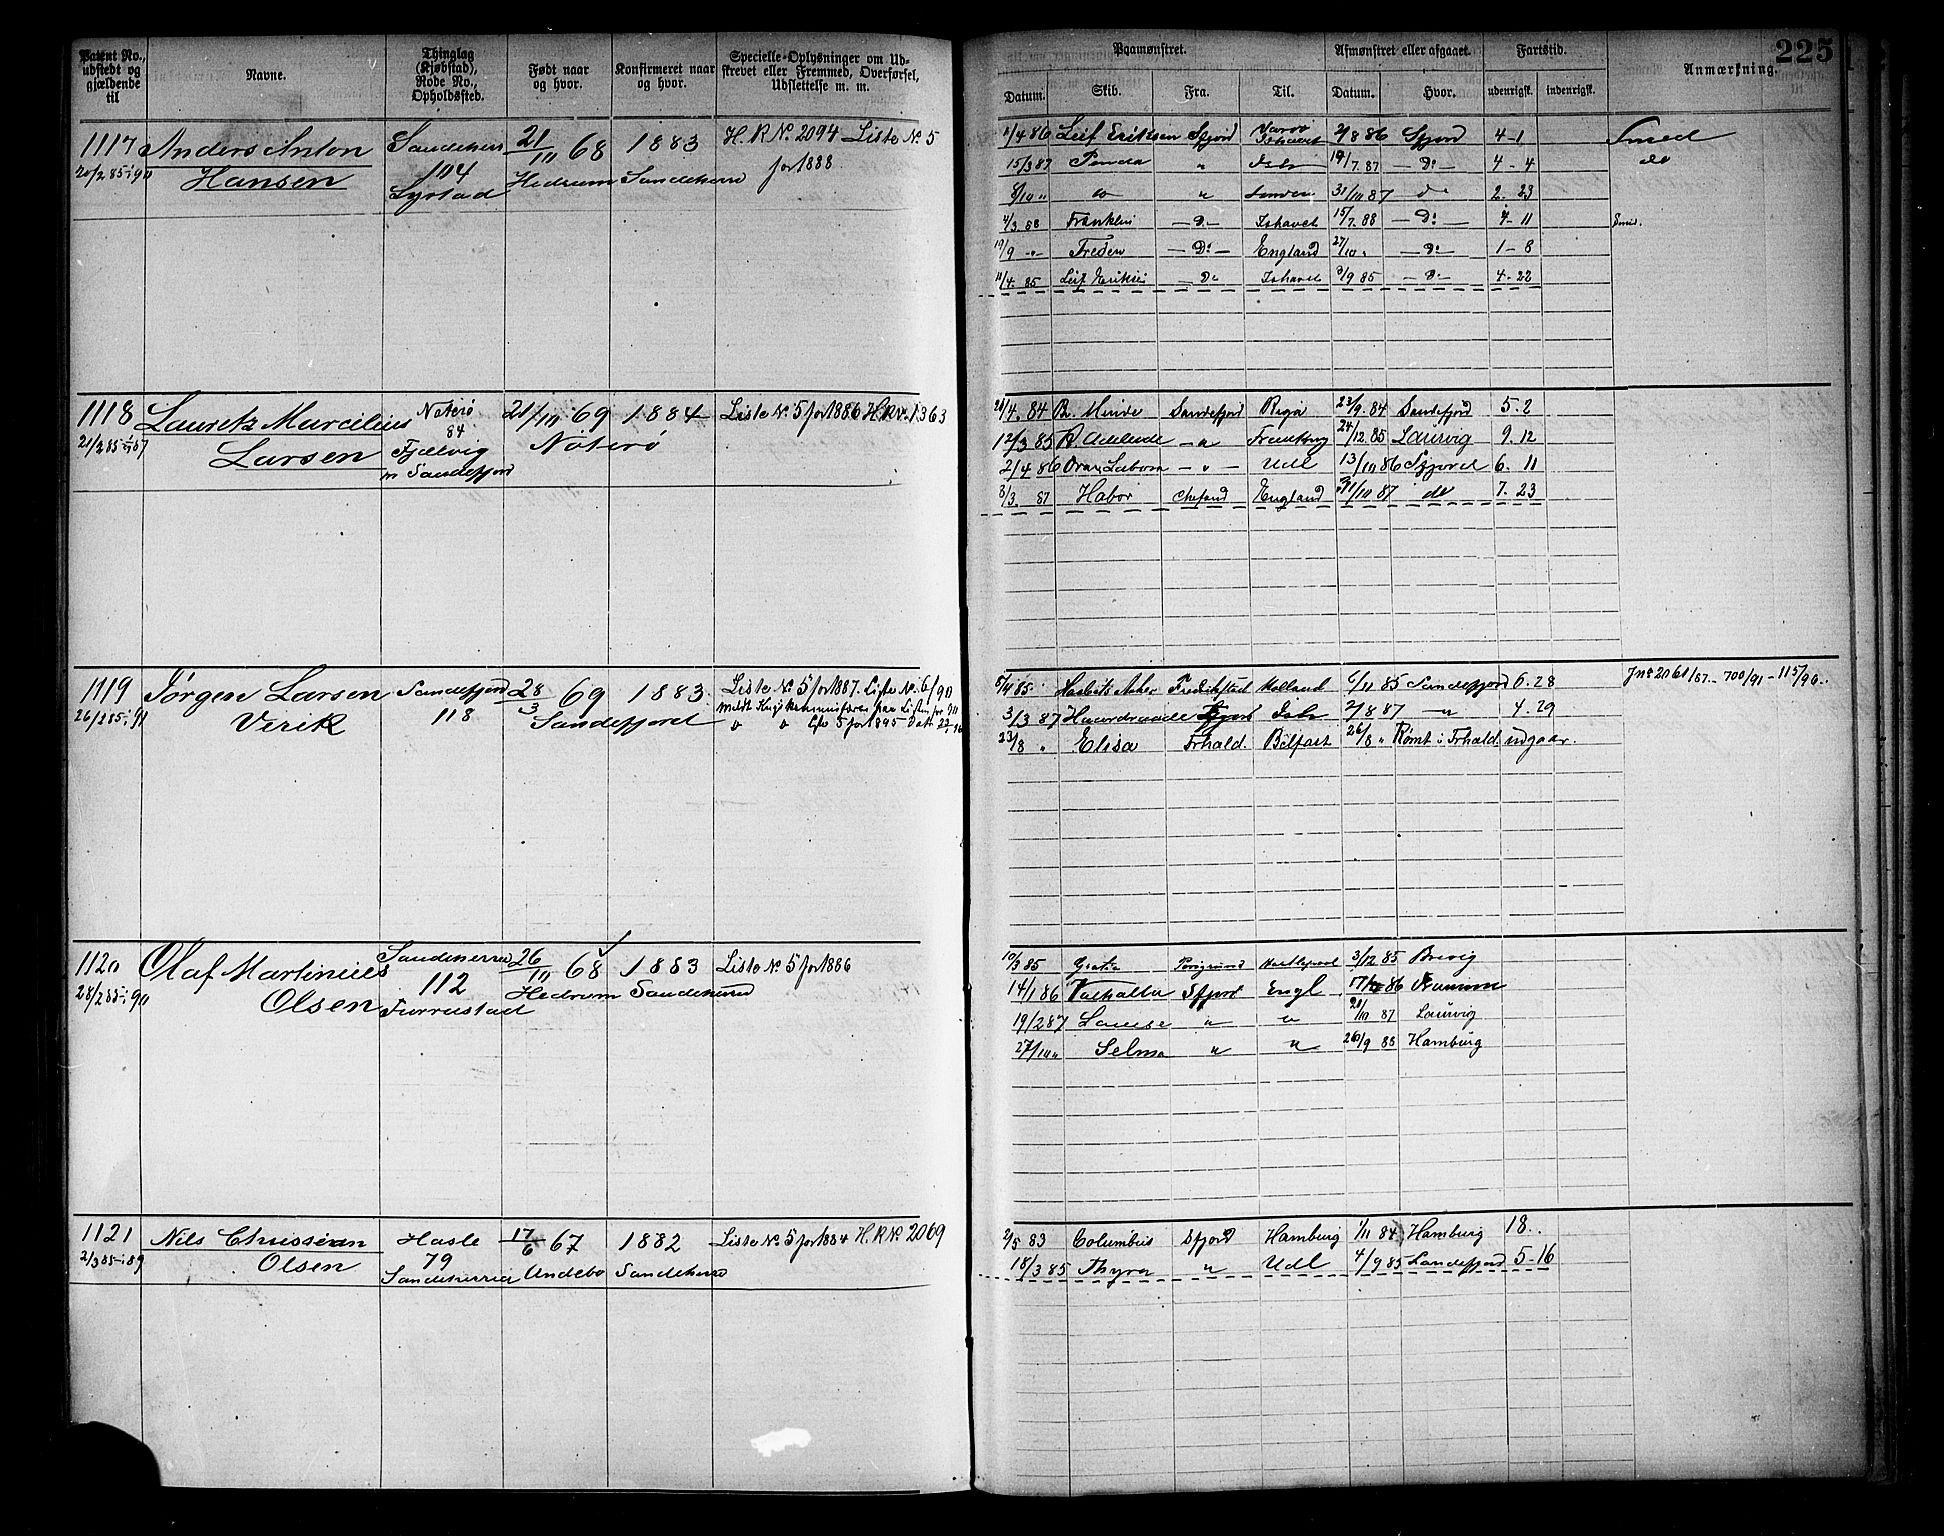 Patent No., udstedt og gjældende til
Navne.
Thinglag (Kjøbstad), Rode No., Opholdssted.
Født naar og hvor.
Konfirmeret naar og hvor.
Specielle Oplysninger om Udstrevet eller Fremmed, Overførsel, Udslettelse m. m.
Paamønstret.
Afmønstret eller afgaaet.
Fartstid.
Anmærkning.
225
Datum. Skib. Fra. Til. Datum. Hvor. udenrigsk. indenrigsk.
1117 Anders Anton Sandeherr 21/10 68 1883 H. R No. 2094 Liste No. 5
20/2 85-i 90 Hansen 104 Hedrum Sandeherred for 1888
Lystad
1/4 86 Leif Eriksen Sfjord Ishavet 2/8 86 Sfjord 4-1 Smed
15/3 87 " Ish 19/7. 87 - Do - 4-4 do
8/10 " do " 31/10 87 do 2-23
4/3 88 Franklin - Do - Ishavet 15/7. 88 - Do - 4-11 Smed.
19/9 -"- Freden - Do - England 27/10 " - Do - 1-8
11/4. 85 Leif Eriksen - Do Ishavet 3/9 85 - Do - 4-22
1118 Lauritz Marcelius Noterø 21/10 69 1884 Liste No. 5 for 1886 H. R No. 1363
21/2 85-i 87 Larsen 84 Noterø
Fjælvig
m Sandefjord
21/4. 84 B. Minde Sandefjord Riga 23/9. 84 Sandefjord 5-2
12/3 85 -"- 24/12. 85 Laurvig 9. 12
2/4 86 - " - Udl 13/10 86 Sfjord 6. 11
8/3. 87 Habor England 31/10 87 do 7. 23
1119 Jørgen Larsen Sandefjord 28/3 69 1883 Liste No. 5 for 1887. Liste No. 6/90
26/2 85-i 91 Virik 118 Sandefjord
" " Lfr 5 for 1895
5/4 85 Fredrikstad Holland 6/11 85 Sandefjord 6. 28 Jno 2061/87 - 700/91 - 115/96.
3/3 87 Haardraade Sfjord Ish 2/8 87 -"- 4. 29
23/8 " Elisa Frhald. Belfast 26/8 " Rømt i Frhald. udgaar.
1120 Olaf Martinius Sandeherred 26/10 68 1883 Liste No. 5 for 1886
28/2 85-i 90 Olsen 112 Hedrum Sandeherred
Furrustad
10/3 85 Gratia Porsgrund Hartlepool 3/12 85 Brevig
14/1 86 Valhalla Sfjord Engl 86
19/2 87 " " 21/10 87 Laurvig
27/10 " Selma " " 20/9 88 Hamburg
1121 Nils Chrissian Hasle 17/6 67 1882 Liste No. 5 for 1884 H. R No. 2069
2/3 85-i 89 Olsen 79 Andebo Sandeherred
Sandeherred
2/5 83 Columbus Sfjord Hamburg 1/11 84 Hamburg 18..
18/3 85 Thyra " Udl 4/9 85 Sandefjord 5-16